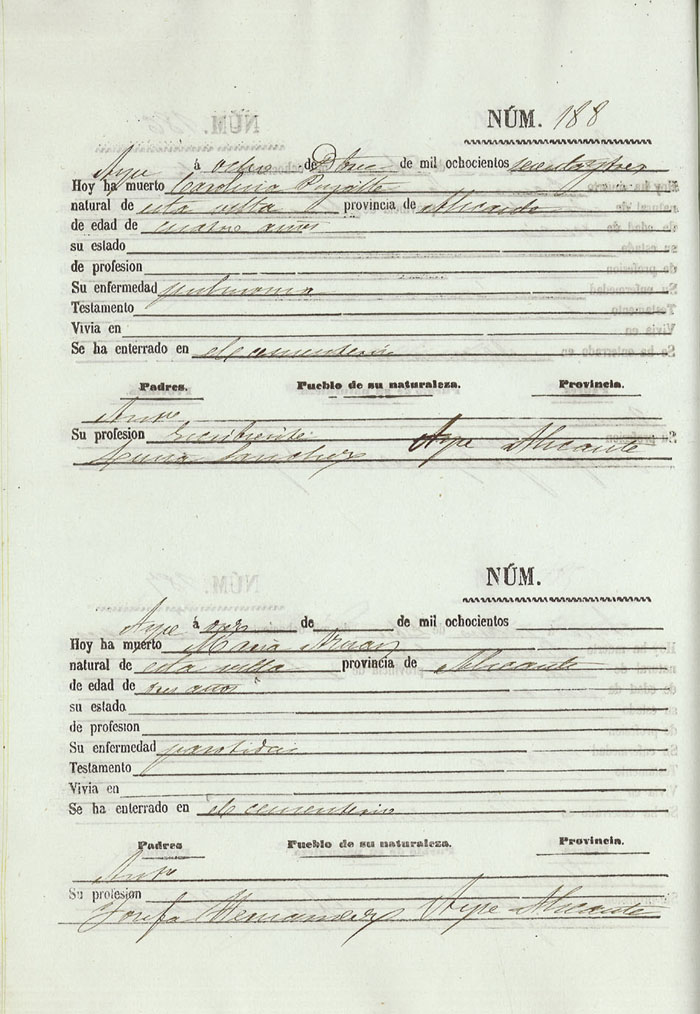 NÚM. 188
Aspe á ocho de Dbre de mil ochocientos sesenta y tres
Hoy ha muerto Carolina
natural de esta villa provincia de Alicante
de edad de cuatro años
su estado
de profesion
Su enfermedad pulmonia
Testamento
Vivia en
Se ha enterrado en el cementerio
Padres. Pueblo de su naturaleza. Provincia.
Su profesion Escribiente
Sanchez Aspe Alicante
NÚM.
Aspe á de de mil ochocientos
Hoy ha muerto Maria
natural de esta villa provincia de Alicante
de edad de años
su estado
de profesion
Su enfermedad parotida
Testamento
Vivia en
Se ha enterrado en el cementerio
Padres Pueblo de su naturaleza. Provincia.
Su profesion
Josefa Hernandez Aspe Alicante